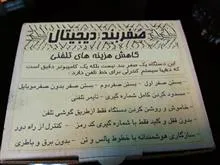 صفر بند دیجیتال
کاهش هزینه های تلفنی
این دستگاه یک صفر بند نیست بلکه یک کامپیوتر دقیق است
که دقیقا سیستم کنترل برای خط تلفن دارد
بستن صفر اول - بستن صفر دوم - بستن صفر بدون صفر موبایل
مسدود کردن کامل شماره گیری - تایمر تلفنی
خاموش و روشن کردن دستگاه فقط از طریق گوشی تلفن
و حمل و قفل تلفن فقط با شماره گیری کد رمز - کنترل از راه دور
سازگاری هوشمندانه با خطوط پالس و تن - بدون برق و باطری